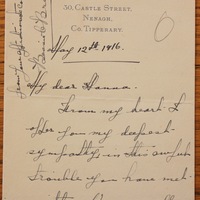 30, CASTLE STREET,
NENAGH,
CO. TIPPERARY.
May 12th 1916.
My dear Hanna.
From my heart I
offer you my deepest
sympathy in this awful
trouble you have met